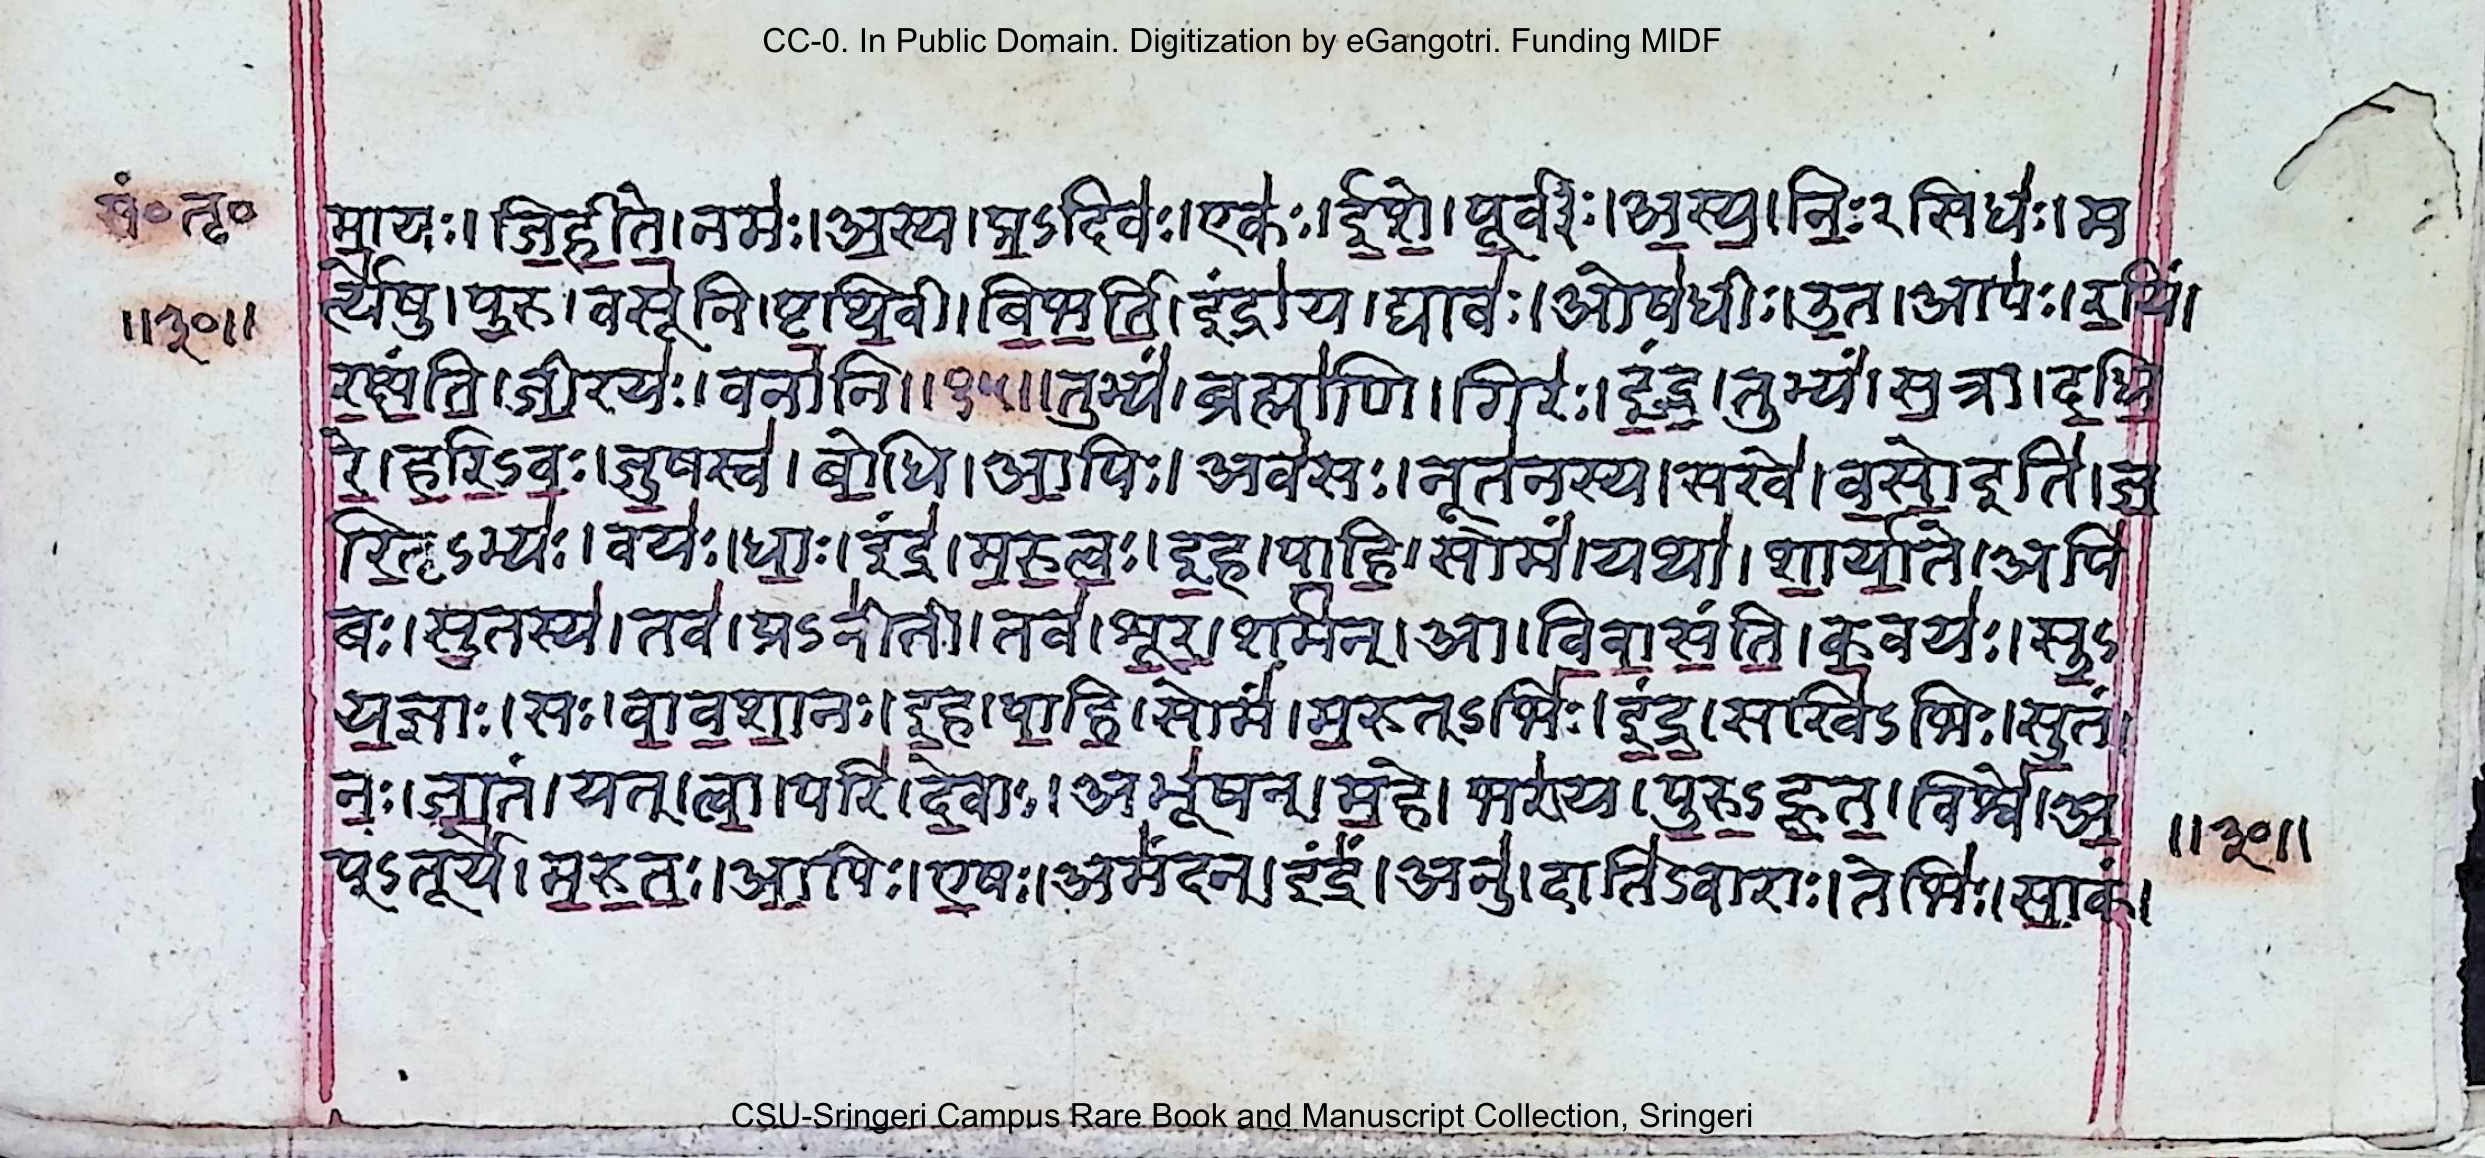 CC-0. In Public Domain. Digitization by eGangotri. Funding MIDF
सं० तृ०
मा॒यः॒। जि॒ही॒ते॒। नमः॑। अ॒स्य॒। प्र॒ऽदिवः॑। एकः॑। ई॒शे॒। पू॒र्वीः। अ॒स्य॒। निः॒२सिधः॑। म
र्त्ये॑षु। पु॒रु। वसू॑नि। पृ॒थि॒वी। बि॒भ॒र्ति॒। इंद्रा॑य। द्यावः॑। ओष॑धीः। उ॒त। आपः॑। र॒यिं।
॥३०॥
र॒क्षं॒ति॒। जी॒रयः॑। वना॑नि॥१५॥तुभ्यं॑। ब्रह्मा॑णि। गिरः॑। इं॒द्र॒। तुभ्यं॑। स॒त्रा। द॒धि॒
रे॒। ह॒रि॒ऽवः॒। जु॒षस्व॑। बो॒धि। आ॒पिः। अव॑सः। नूत॑नस्य। सखे॑। व॒सो॒इति॑। ज॒
रि॒तृऽभ्यः॑। वयः॑। धाः॒। इंद्र॑। म॒रु॒त्वः॒। इ॒ह। पा॒हि॒। सोमं॑। यथा॑। शा॒र्या॒ते। अपि॑
बः। सु॒तस्य॑। तव॑। प्रऽनी॑ती। तव॑। शू॒र॒। शर्म॑न्। आ। वि॒वा॒सं॒ति॒। क॒वयः॑। सु॒ऽ
य॒ज्ञाः। सः। वा॒व॒शा॒नः। इ॒ह। पा॒हि॒। सोमं॑। म॒रुत्ऽभिः॑। इं॒द्र॒। सखि॑ऽभिः। सु॒तं।
नः॒। जा॒तं। यत्। त्वा॒। परि॑। दे॒वाः। अभू॑षन्। म॒हे। भरा॑य। पु॒रु॒ऽहू॒त॒। विश्वे॑। अ॒
प्ऽतूर्ये॑। म॒रु॒तः॒। आ॒पिः। ए॒षः। अमं॑दन्। इंद्रं॑। अनु॑। दाति॑ऽवाराः। तेभिः॑। सा॒कं।
॥३०॥
CSU-Sringeri Campus Rare Book and Manuscript Collection, Sringeri